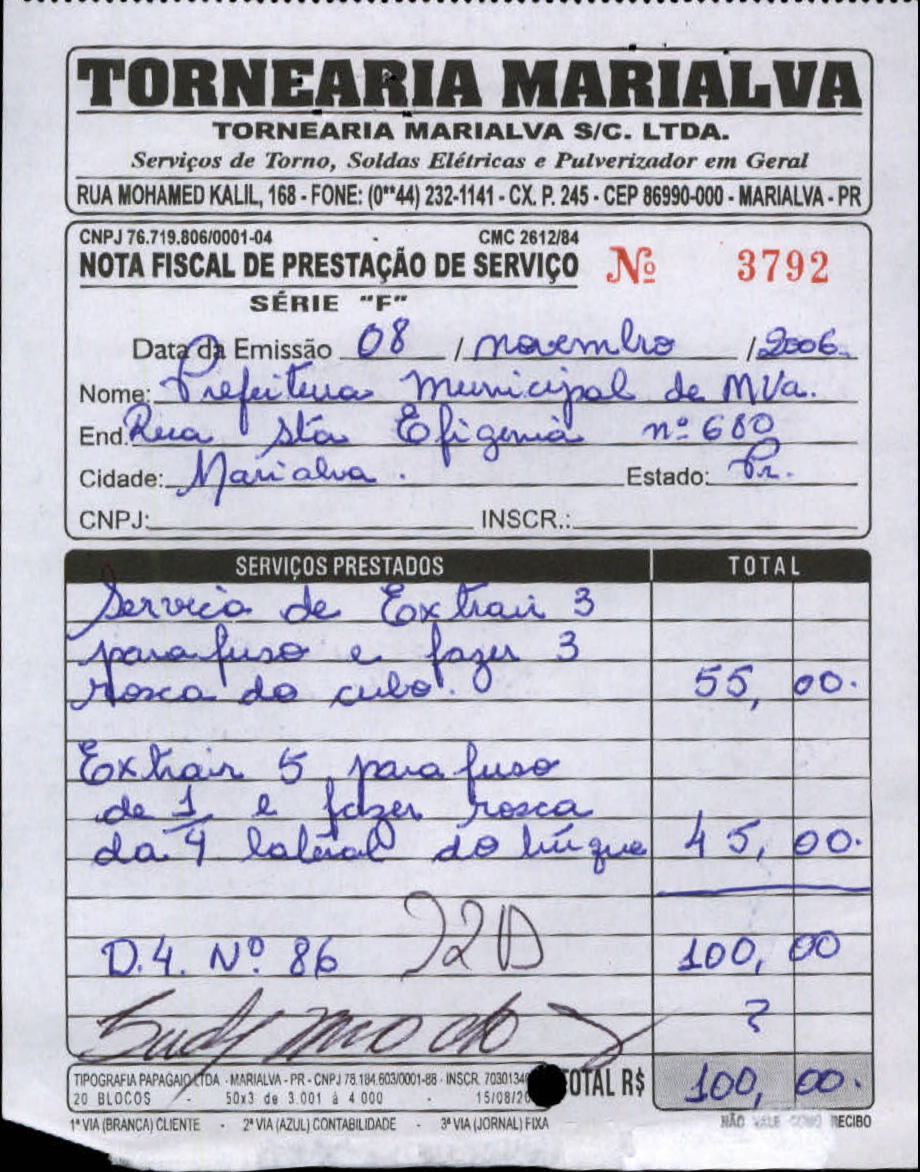 TORNEARIA MARIALVA
TORNEARIA MARIALVA S/C. LTDA.
Serviços de Torno, Soldas Elétricas e Pulverizador em Geral
RUA MOHAMED KALIL, 168 - FONE: (0**44) 232-1141 - CX. P. 245 - CEP 86990-000 - MARIALVA - PR
CNPJ 76.719.806/0001-04 CMC 2612/84
NOTA FISCAL DE PRESTAÇÃO DE SERVIÇO Nº 3792
SÉRIE "F"
Data da Emissão 08 / novembro / 2006
Nome: Prefeitura Municipal de MVa.
End. Rua Sta Efigenia nº 680
Cidade: Marialva. Estado: Pr.
CNPJ: INSCR.:
SERVIÇOS PRESTADOS TOTAL
Servico de Extrair 3
parafuso e fazer 3
rosca do cubo. 55,00.
Extrair 5 parafuso
de 1/4 e fazer rosca
da lateral do 45,00.
D.4. Nº 86 100,00
?
TIPOGRAFIA PAPAGAIO LTDA - MARIALVA - PR - CNPJ 78.184.603/0001-88 - INSCR. 7030134
20 BLOCOS - 50x3 de 3.001 à 4.000 - 15/08/20
TOTAL R$ 100,00.
1ª VIA (BRANCA) CLIENTE - 2ª VIA (AZUL) CONTABILIDADE - 3ª VIA (JORNAL) FIXA
NÃO VALE COMO RECIBO